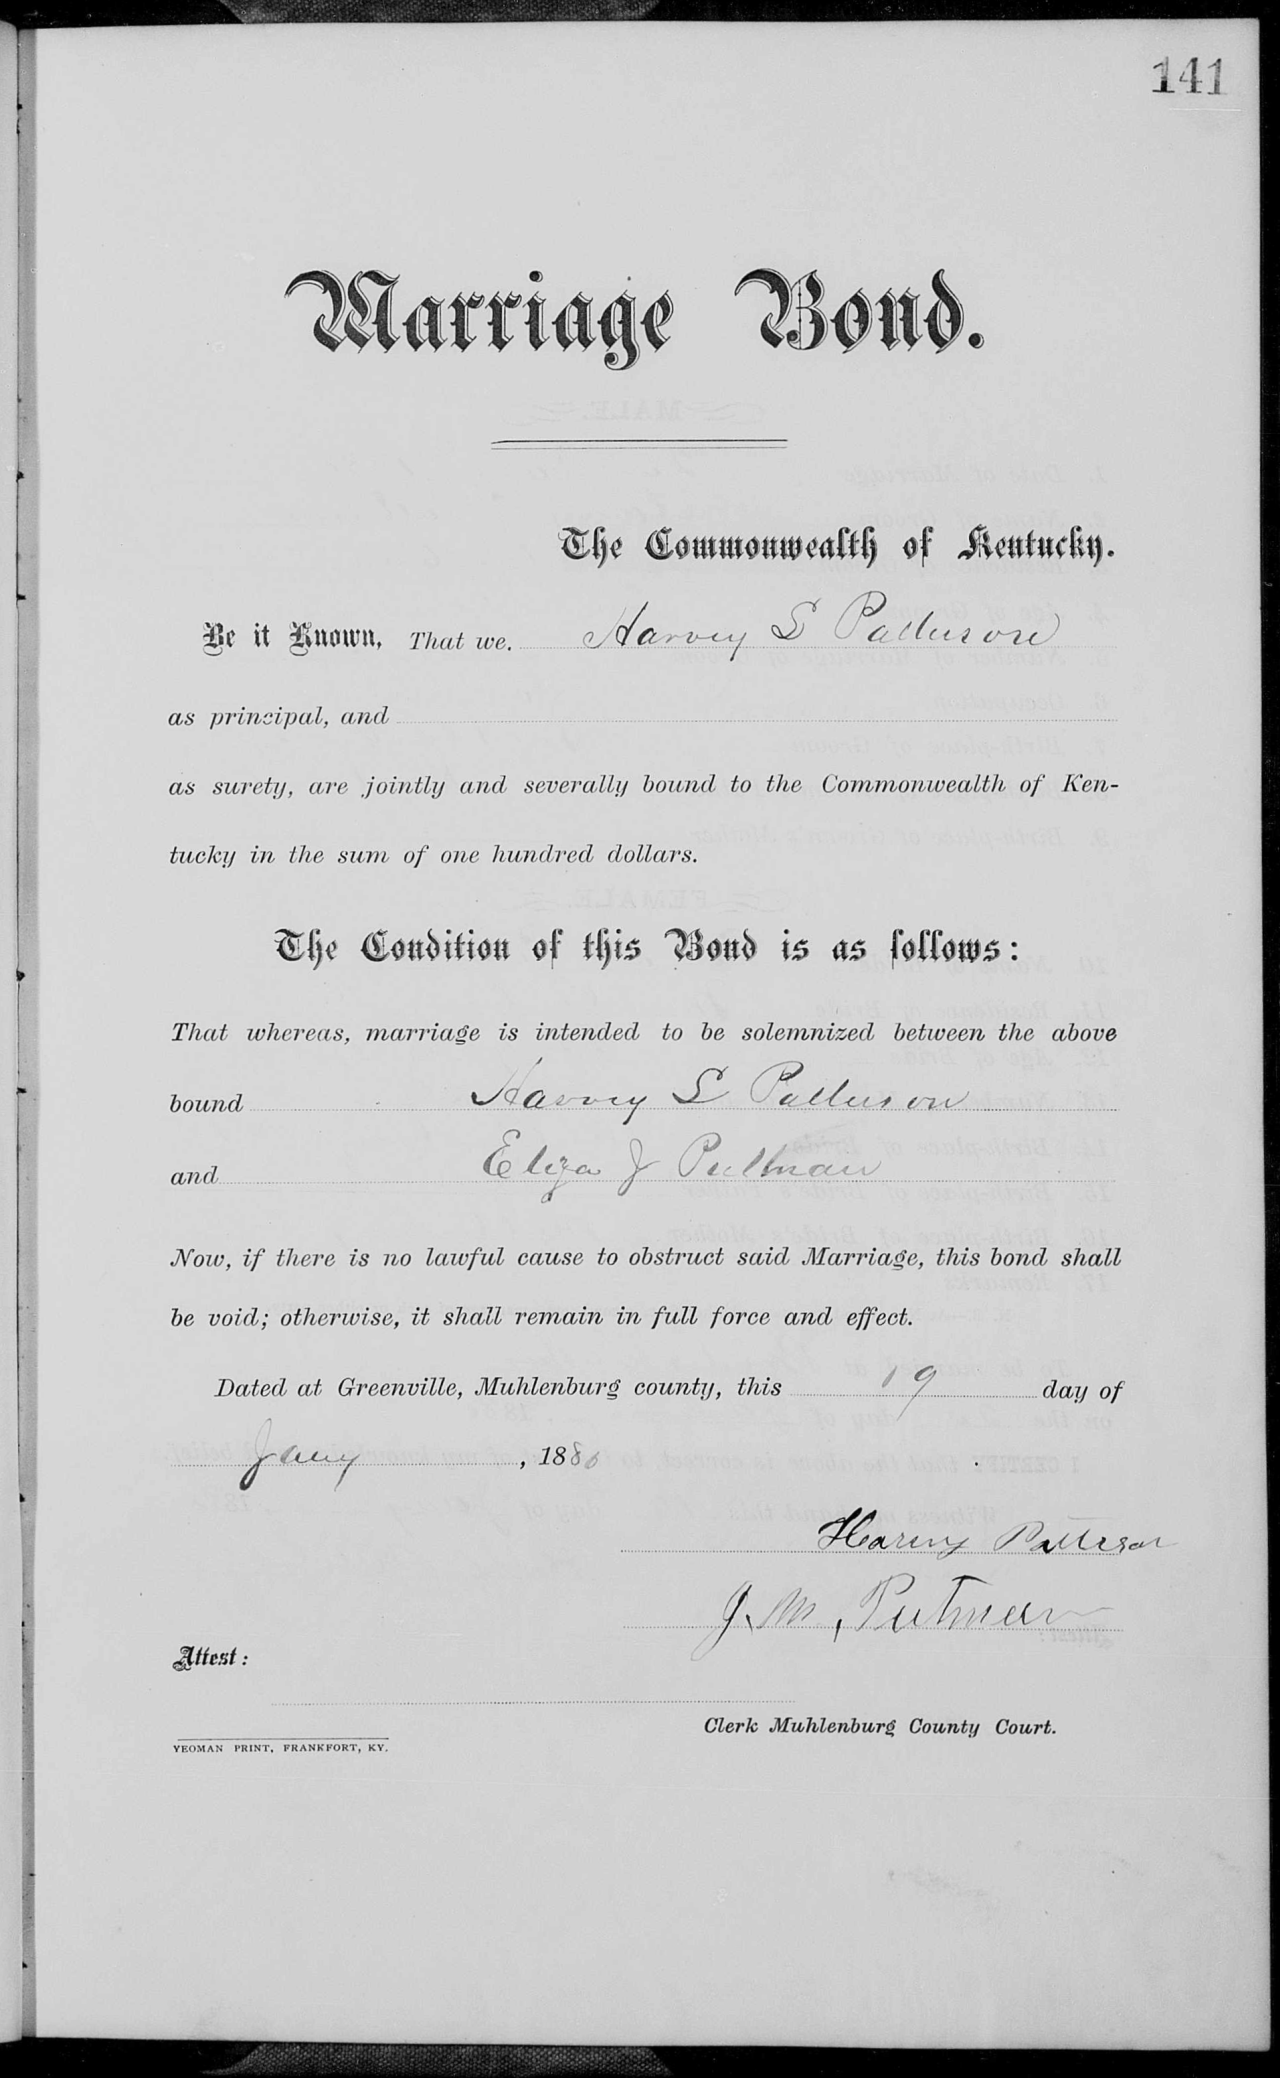 141
Marriage Bond.
The Commonwealth of Kentucky.
Be it Known, That we. Harvey S Patterson
as principal, and
as surety, are jointly and severally bound to the Commonwealth of Ken-
tucky in the sum of one hundred dollars.
The Condition of this Bond is as follows:
That whereas, marriage is intended to be solemnized between the above
bound Harvey S Patterson
and Eliza J Putman
Now, if there is no lawful cause to obstruct said Marriage, this bond shall
be void; otherwise, it shall remain in full force and effect.
Dated at Greenville, Muhlenburg county, this 19 day of
Jany, 188
Harvy Patterson
J. M. Putman
Attest:
Clerk Muhlenburg County Court.
YEOMAN PRINT, FRANKFORT, KY.